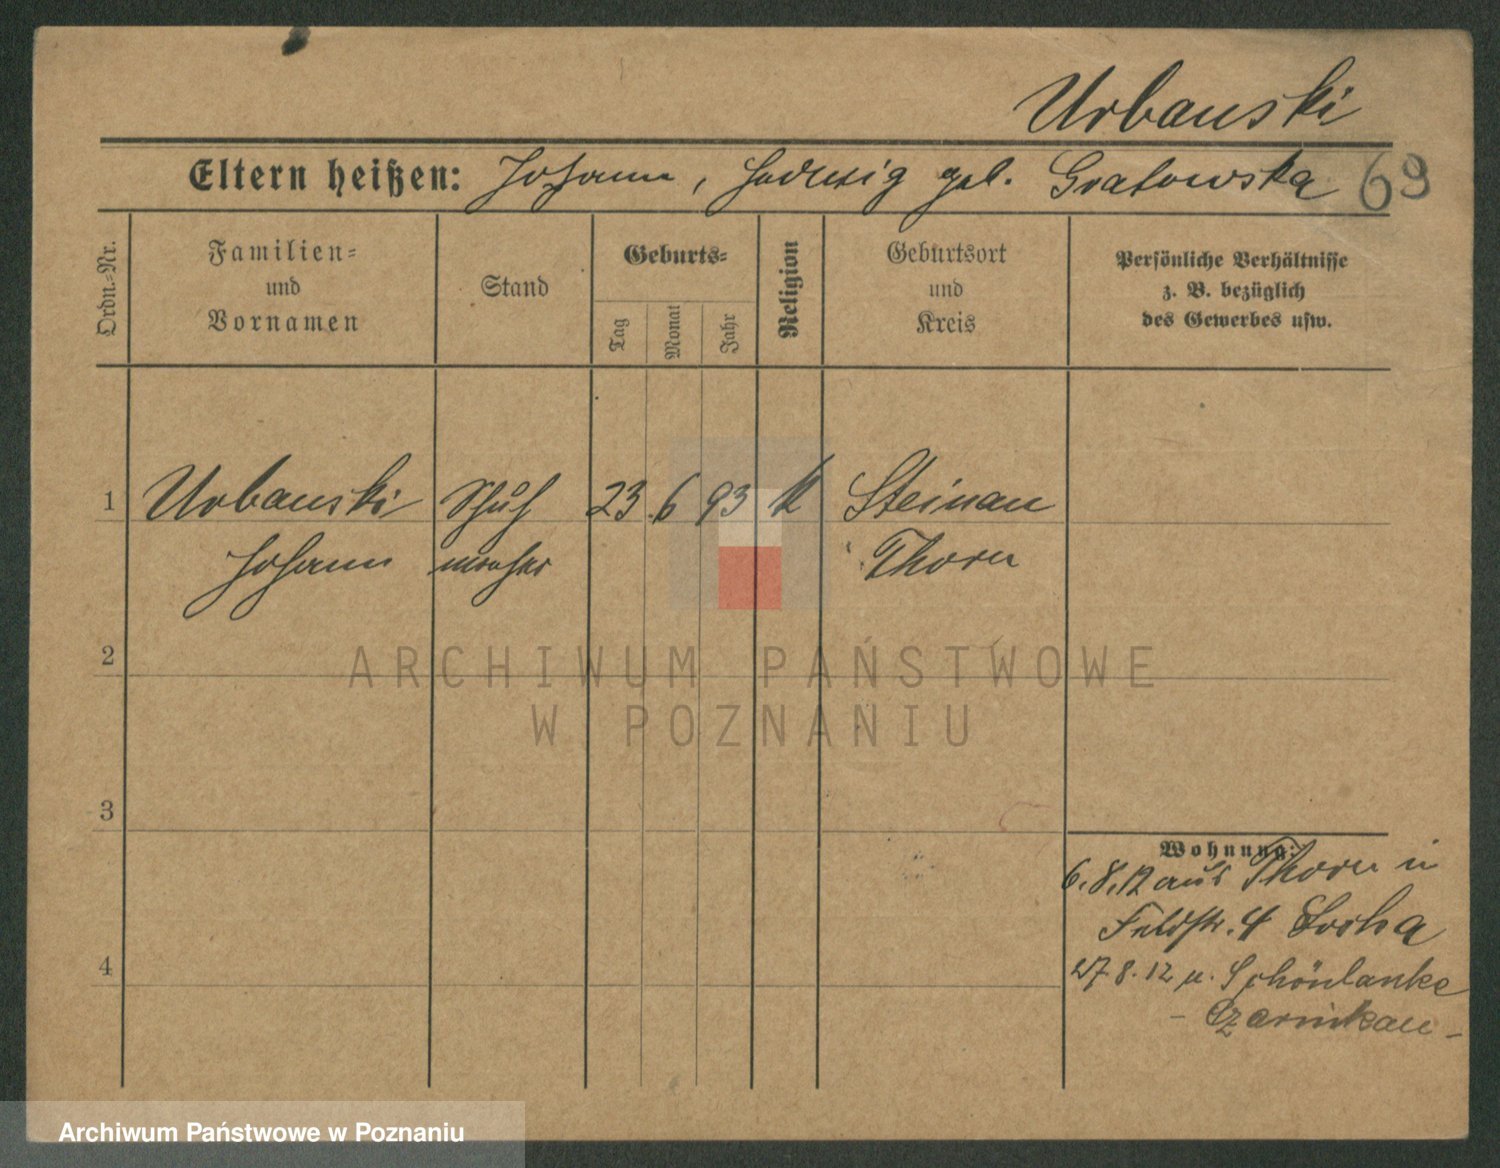 Urbanski
Eltern heißen: Johann, Hedwig geb. Gratowska 69
Ordn.-Nr.
Familien-
und
Vornamen
Stand
Geburts-
Tag
Monat
Jahr
Religion
Geburtsort
und
Kreis
Persönliche Verhältnisse
z. B. bezüglich
des Gewerbes usw.
1 Urbanski Schuh 23 6 93 k Steinau
Johann macher Thorn
2
ARCHIWUM PAŃSTWOWE
W POZNANIU
3
Wohnung:
6.8.12 aus Thorn in
Feldstr. 4 Socha
4
27.8.12 n. Schönlanke
- Czarnikau -
Archiwum Państwowe w Poznaniu